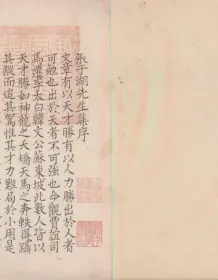 張于湖先生集序
文章有以天才勝有以人力勝出於人者
可勉也出於天者不可強也今觀賈誼司
馬遷李太白韓文公蘇東坡此數人皆以
天才勝如神龍之夭矯天馬之奔軼得躡
其蹤而追其駕惟其才力難局於小用是